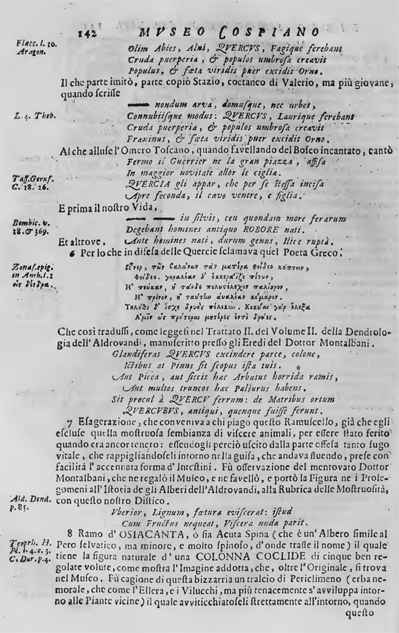 142 MVSEO COSPIANO
Flacc. l. 10.
Aragon.
Olim Abies, Alni, QVERCVS, Fagique ferebant
Cruda puerperia, & populos umbrosa creavit
Populus, & fæta viridis puer excidit Orno.
Il che parte imitò, parte copiò Stazio, coetaneo di Valerio, ma più giovane,
quando scrisse
nondum arva, domusque, nec urbes,
L. 4. Theb.
Connubiisque modus: QVERCVS, Laurique ferebant
Cruda puerperia, & populos umbrosa creavit
Fraxinus, & fæta viridis puer excidit Orno.
Al che alluse l'Omero Toscano, quando favellando del Bosco incantato, cantò
Fermo il Guerrier ne la gran piazza, affisa
In maggior novitate allor le ciglia.
Tass. Geruf.
C. 18. 26.
QVERCIA gli appar, che per se stessa incisa
Apre feconda, il cavo ventre, e figlia.
E prima il nostro Vida,
Bombic. v.
18. & 369.
in silvis, ceu quondam more ferarum
Degebant homines antiquo ROBORE nati
Et altrove. Ante homines nati, durum genus, Ilice rupta.
6 Per lo che in difesa delle Quercie sclamava quel Poeta Greco:
Che così tradussi, come leggesi nel Trattato II. del Volume II. della Dendrolo-
gia dell'Aldrovandi, manuscritto presso gli Eredi del Dottor Montalbani.
Glandiferas QVERCVS excindere parce, colone,
Ictibus at Pinus sit scopus ista tuis.
Aut Picea, aut siccis hac Arbutus horrida ramis,
Aut multos truncos hac Paliurus habens.
Sit procul à QVERCV ferrum: de Matribus ortum
QVERCVBVS, antiqui, quenque fuisse ferunt.
7 Esagerazione, che conveniva a chi piago questo Ramuscello, già che egli
escluse quella mostruosa sembianza di viscere animali, per essere stato ferito
quando era ancor tenero: essendogli perciò uscito dalla parte offesa tanto sugo
vitale, che rappigliandoseli intorno nella guisa, che andava sluendo, prese con
facilità l'accennata forma d'Intestini. Fù osservazione del mentovato Dottor
Montalbani, che ne regalò il Museo, e ne favellò, e portò la Figura ne i Prole-
gomeni all'Istoria de gli Alberi dell'Aldrovandi, alla Rubrica delle Mostruosità,
Ald. Dend.
p. 85.
con questo nostro Distico.
Vberior, Lignum, fætura eviscerat: istud
Cum Fructus nequeat, Viscera nuda parit.
8 Ramo d'OSIACANTA, ò sia Acuta Spina (che è un'Albero simile al
Teophr. H.
Pl. l. 4. c. 3.
C. Dur. p. 4.
Pero selvatico, ma minore, e molto spinoso, d'onde trasse il nome) il quale
tiene la figura naturale d'una COLONNA COCLIDE di cinque ben re-
golate volute, come mostra l'Imagine addotta, che, oltre l'Originale, si trova
nel Museo. Fù cagione di questa bizzarria un tralcio di Periclimeno (erba ne-
morale, che come l'Ellera, e i Vilucchi, ma più tenacemente s'avviluppa intor-
no alle Piante vicine) il quale avviticchiatoseli strettamente all'intorno, quando
questo